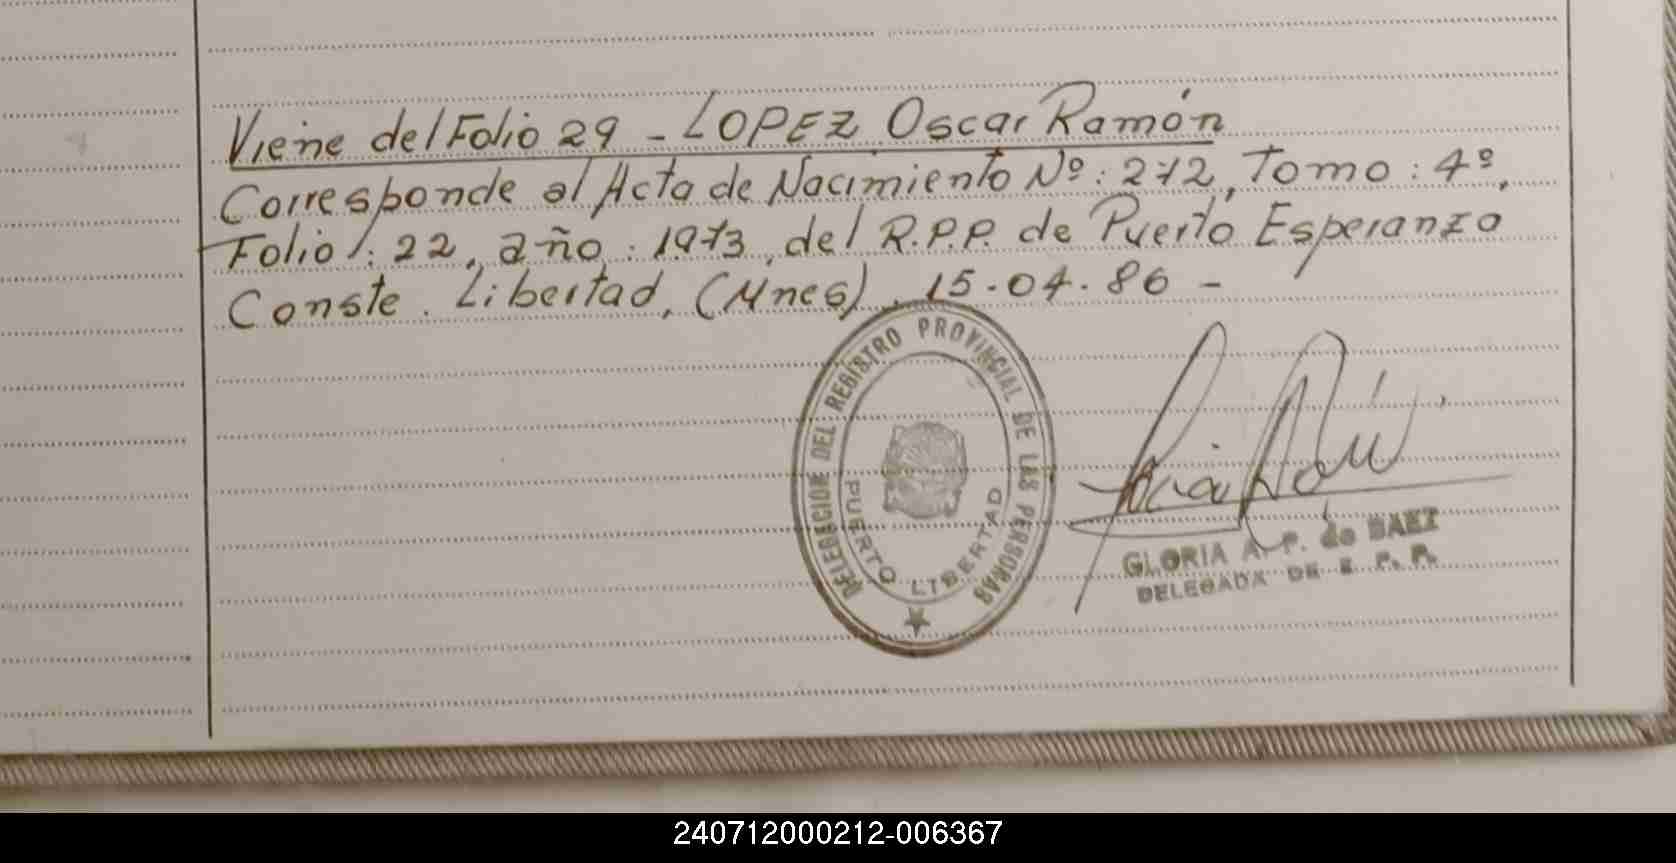 Viene del Folio 29 - LOPEZ Oscar Ramón
Corresponde al Acta de Nacimiento Nº: 272, Tomo: 4º,
Folio: 22, año: 1973, del R.P.P. de Puerto Esperanza
Conste. Libertad, (Mnes), 15.04.86 -
DELEGACION DEL REGISTRO PROVINCIAL DE LAS PERSONAS
PUERTO LIBERTAD
GLORIA A. P. de BAEZ
DELEGADA DE R. P. P.
240712000212-006367